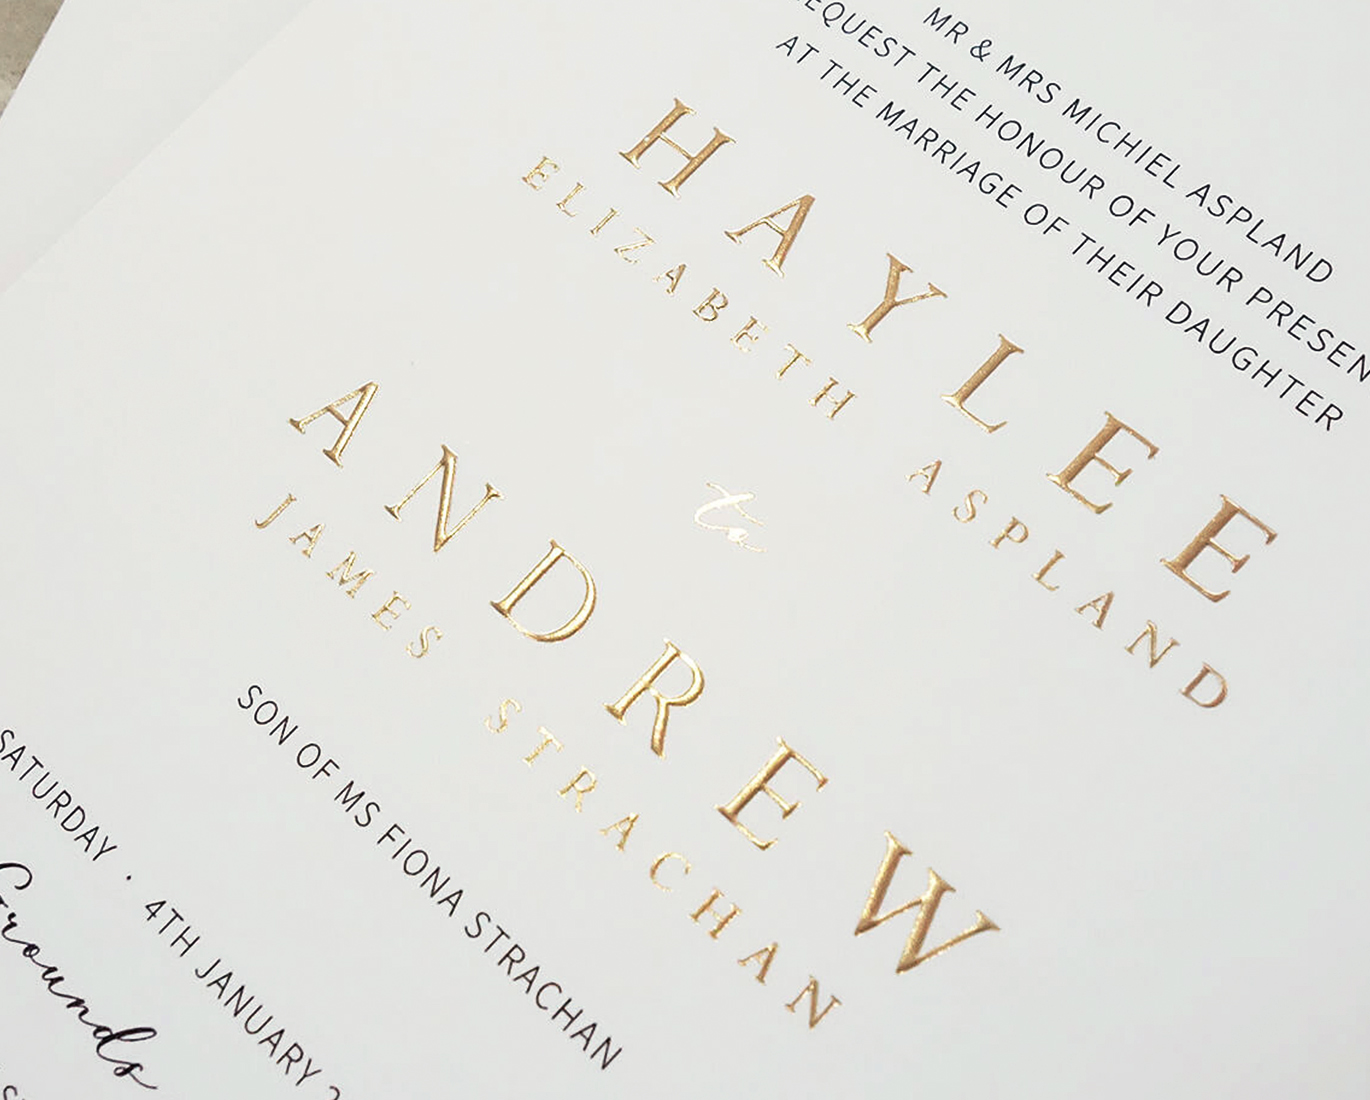 MR & MRS MICHIEL ASPLAND
REQUEST THE HONOUR OF YOUR
AT THE MARRIAGE OF THEIR DAUGHTER
HAYLEE
ELIZABETH ASPLAND
to
ANDREW
JAMES STRACHAN
SON OF MS FIONA STRACHAN
SATURDAY · 4TH JANUARY
Grounds